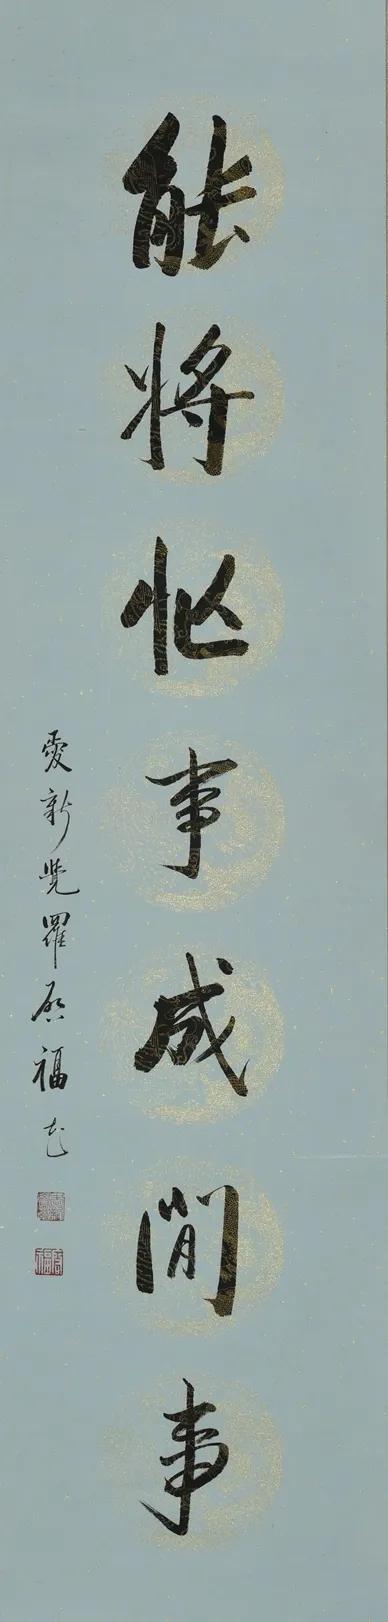 能將忙事成閒事
愛新覺羅啓福書